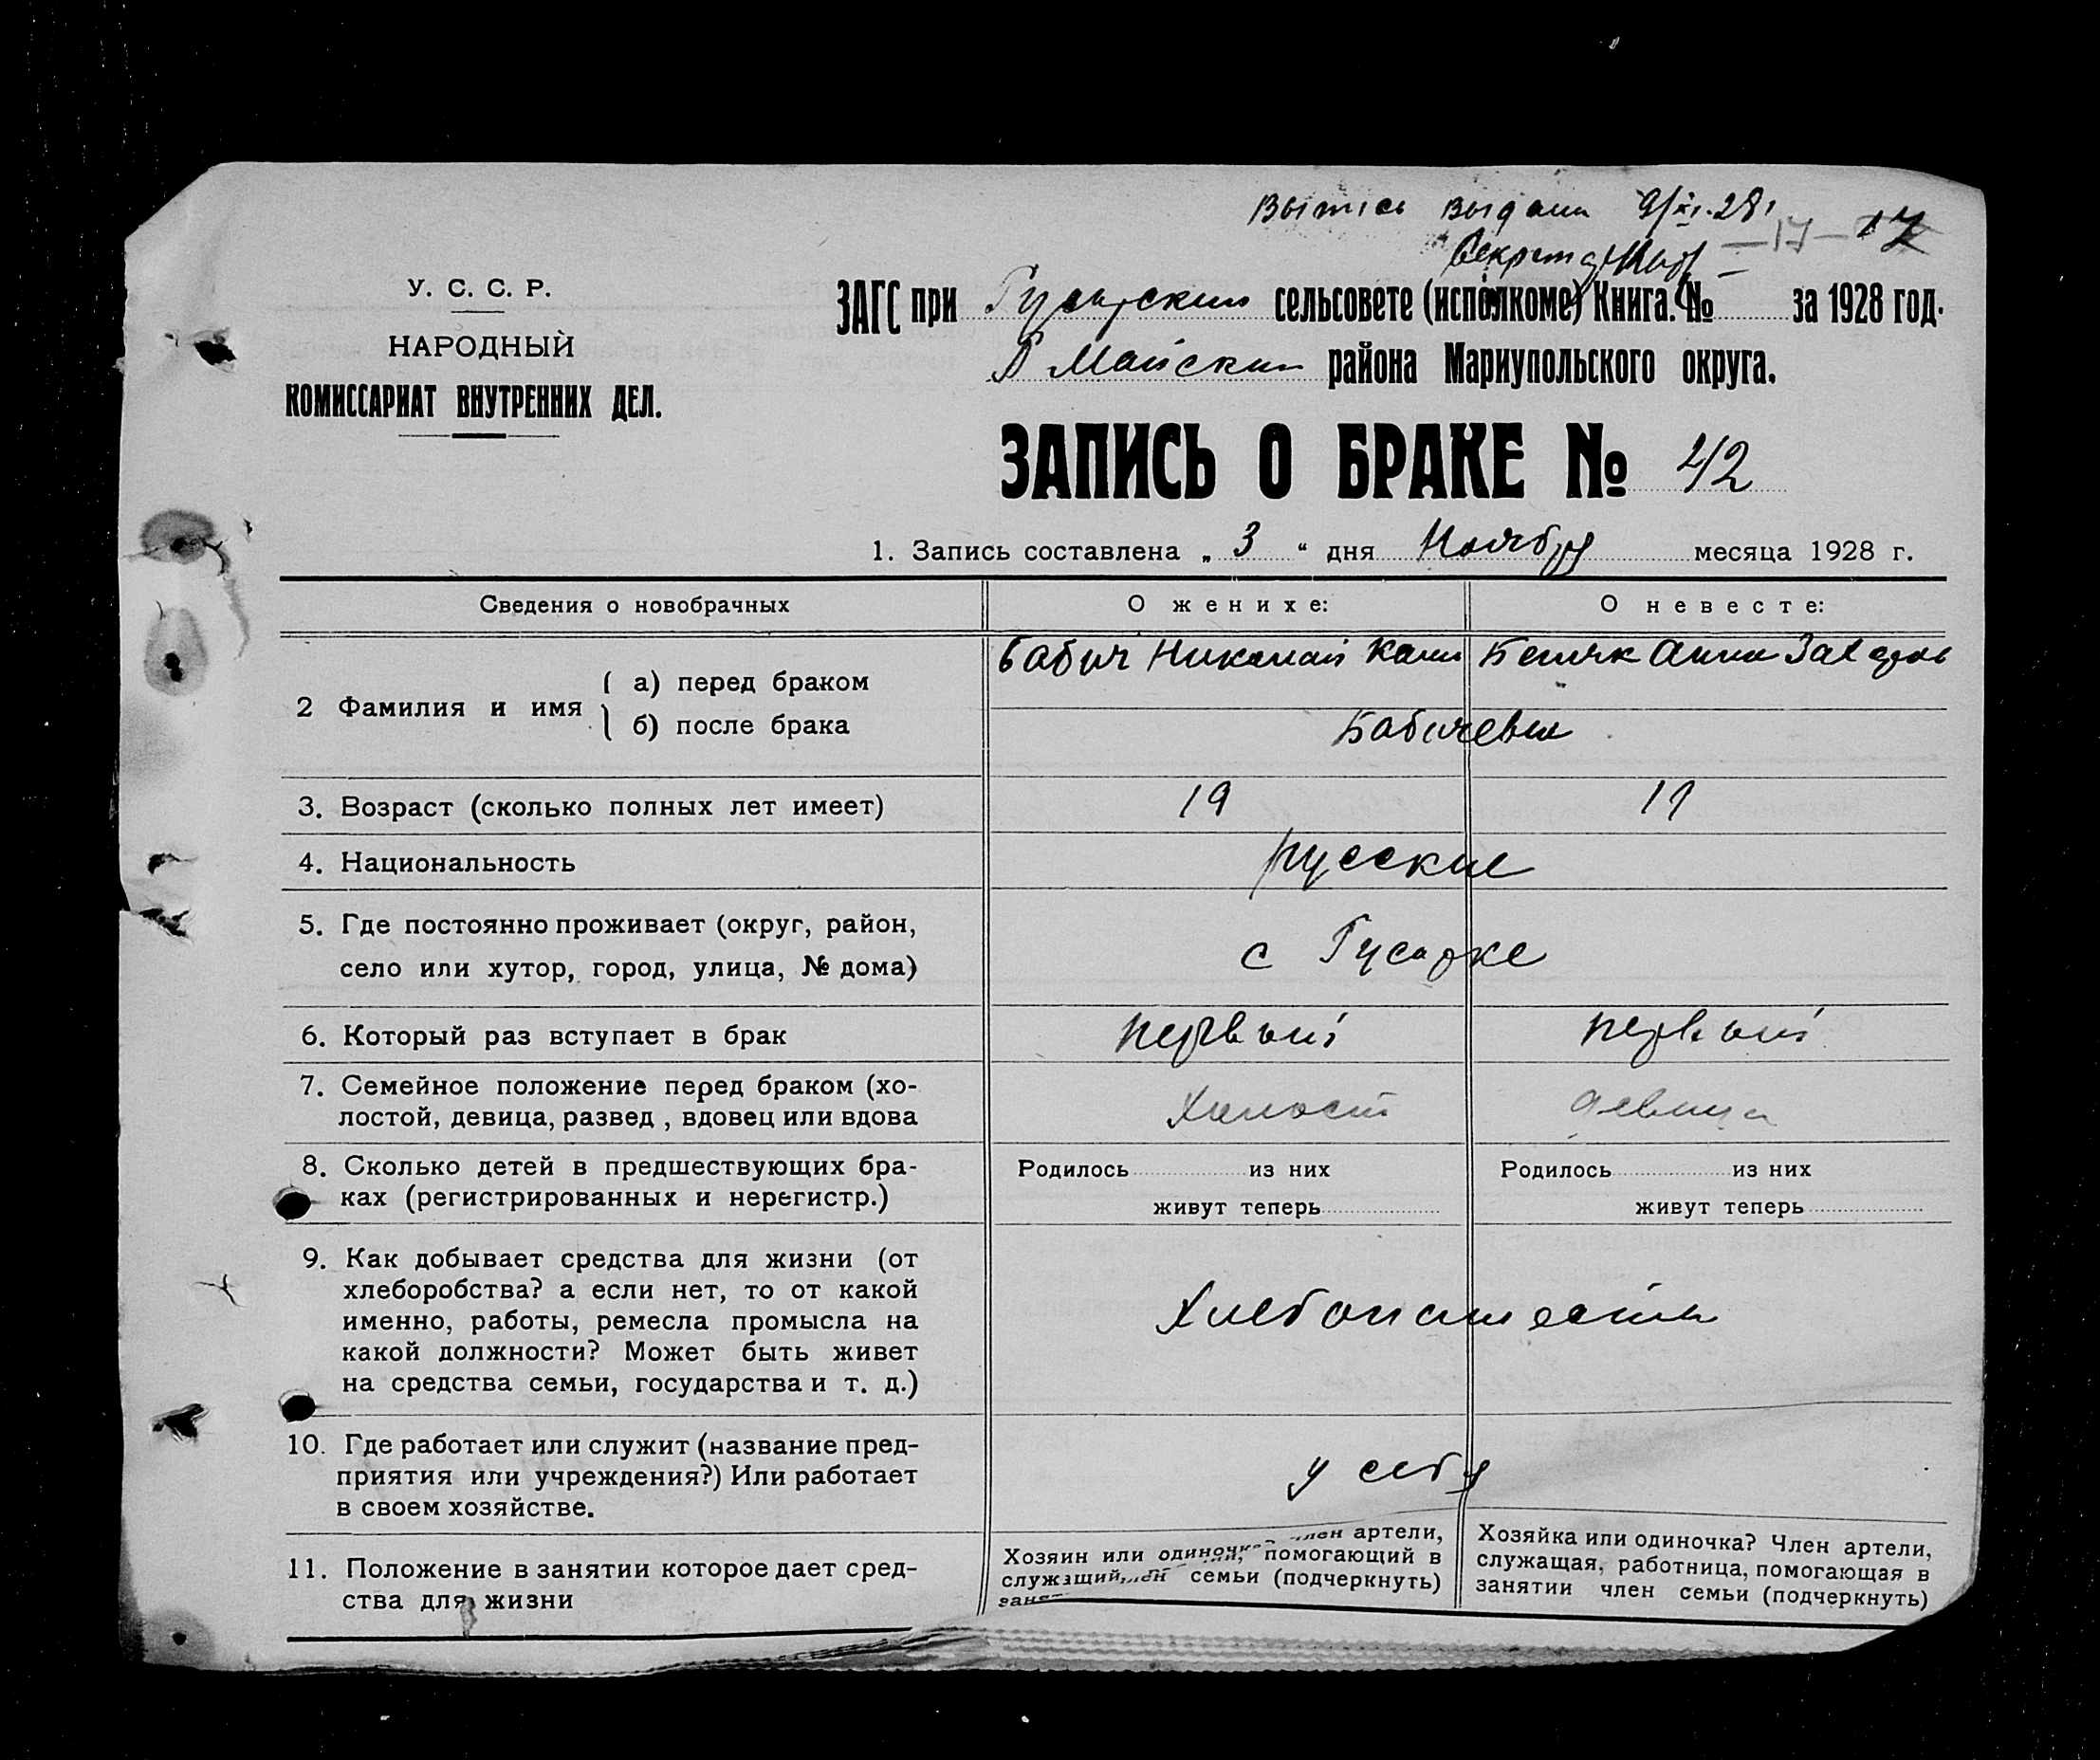 Выпись выдана 9/XI.28г
Секрет
—17— 17
У. С. С. Р.
НАРОДНЫЙ
КОМИССАРИАТ ВНУТРЕННИХ ДЕЛ.
ЗАГС при Гусарским сельсовете (исполкоме) Книга. № за 1928 год.
П Майским района Мариупольского округа.
ЗАПИСЬ О БРАКЕ № 42
1. Запись составлена „ 3 “ дня Ноября месяца 1928 г.
Сведения о новобрачных
О женихе:
О невесте:
2 Фамилия и имя
а) перед браком
б) после брака
Бабич Николай
Анна
Бабичевы
3. Возраст (сколько полных лет имеет)
19
17
4. Национальность
русские
5. Где постоянно проживает (округ, район,
село или хутор, город, улица, № дома)
с Гусарке
6. Который раз вступает в брак
первый
первый
7. Семейное положение перед браком (хо-
лостой, девица, развед , вдовец или вдова
Холост
девица
8. Сколько детей в предшествующих бра-
ках (регистрированных и нерегистр.)
Родилось из них
живут теперь
Родилось из них
живут теперь
9. Как добывает средства для жизни (от
хлеборобства? а если нет, то от какой
именно, работы, ремесла промысла на
какой должности? Может быть живет
на средства семьи, государства и т. д.)
Хлебопашество
10. Где работает или служит (название пред-
приятия или учреждения?) Или работает
в своем хозяйстве.
у себя
11. Положение в занятии которое дает сред-
ства для жизни
артели,
Хозяин или помогающий в
служащий, семьи (подчеркнуть)
Хозяйка или одиночка? Член артели,
служащая, работница, помогающая в
занятии член семьи (подчеркнуть)